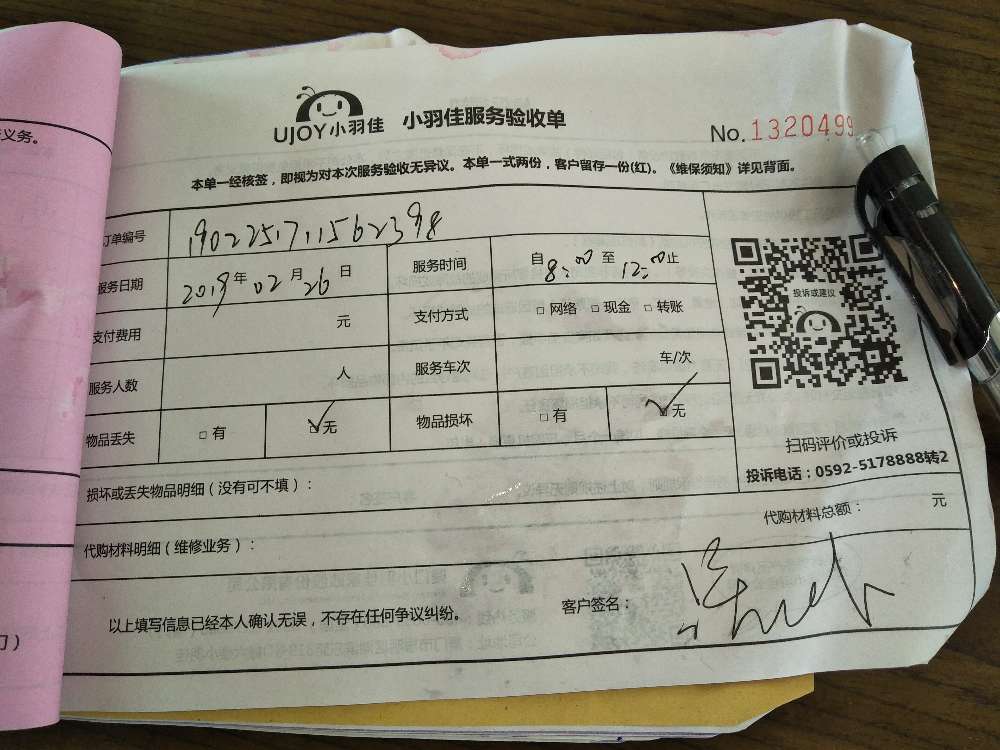 义务。
UJOY小羽佳 小羽佳服务验收单
No. 1320499
本单一经核签，即视为对本次服务验收无异议。本单一式两份，客户留存一份(红)。《维保须知》详见背面。
订单编号 1902251711562398
服务日期 2019年 02 月 26 日 服务时间 自 8:00 至 12:00 止
支付费用 元 支付方式 □ 网络 □ 现金 □ 转账
服务人数 人 服务车次 车/次
物品丢失 □ 有 ☑ 无 物品损坏 □ 有 ☑ 无
投诉或建议
扫码评价或投诉
投诉电话：0592-5178888转2
损坏或丢失物品明细（没有可不填）：
代购材料明细（维修业务）： 代购材料总额： 元
以上填写信息已经本人确认无误，不存在任何争议纠纷。 客户签名：
门）